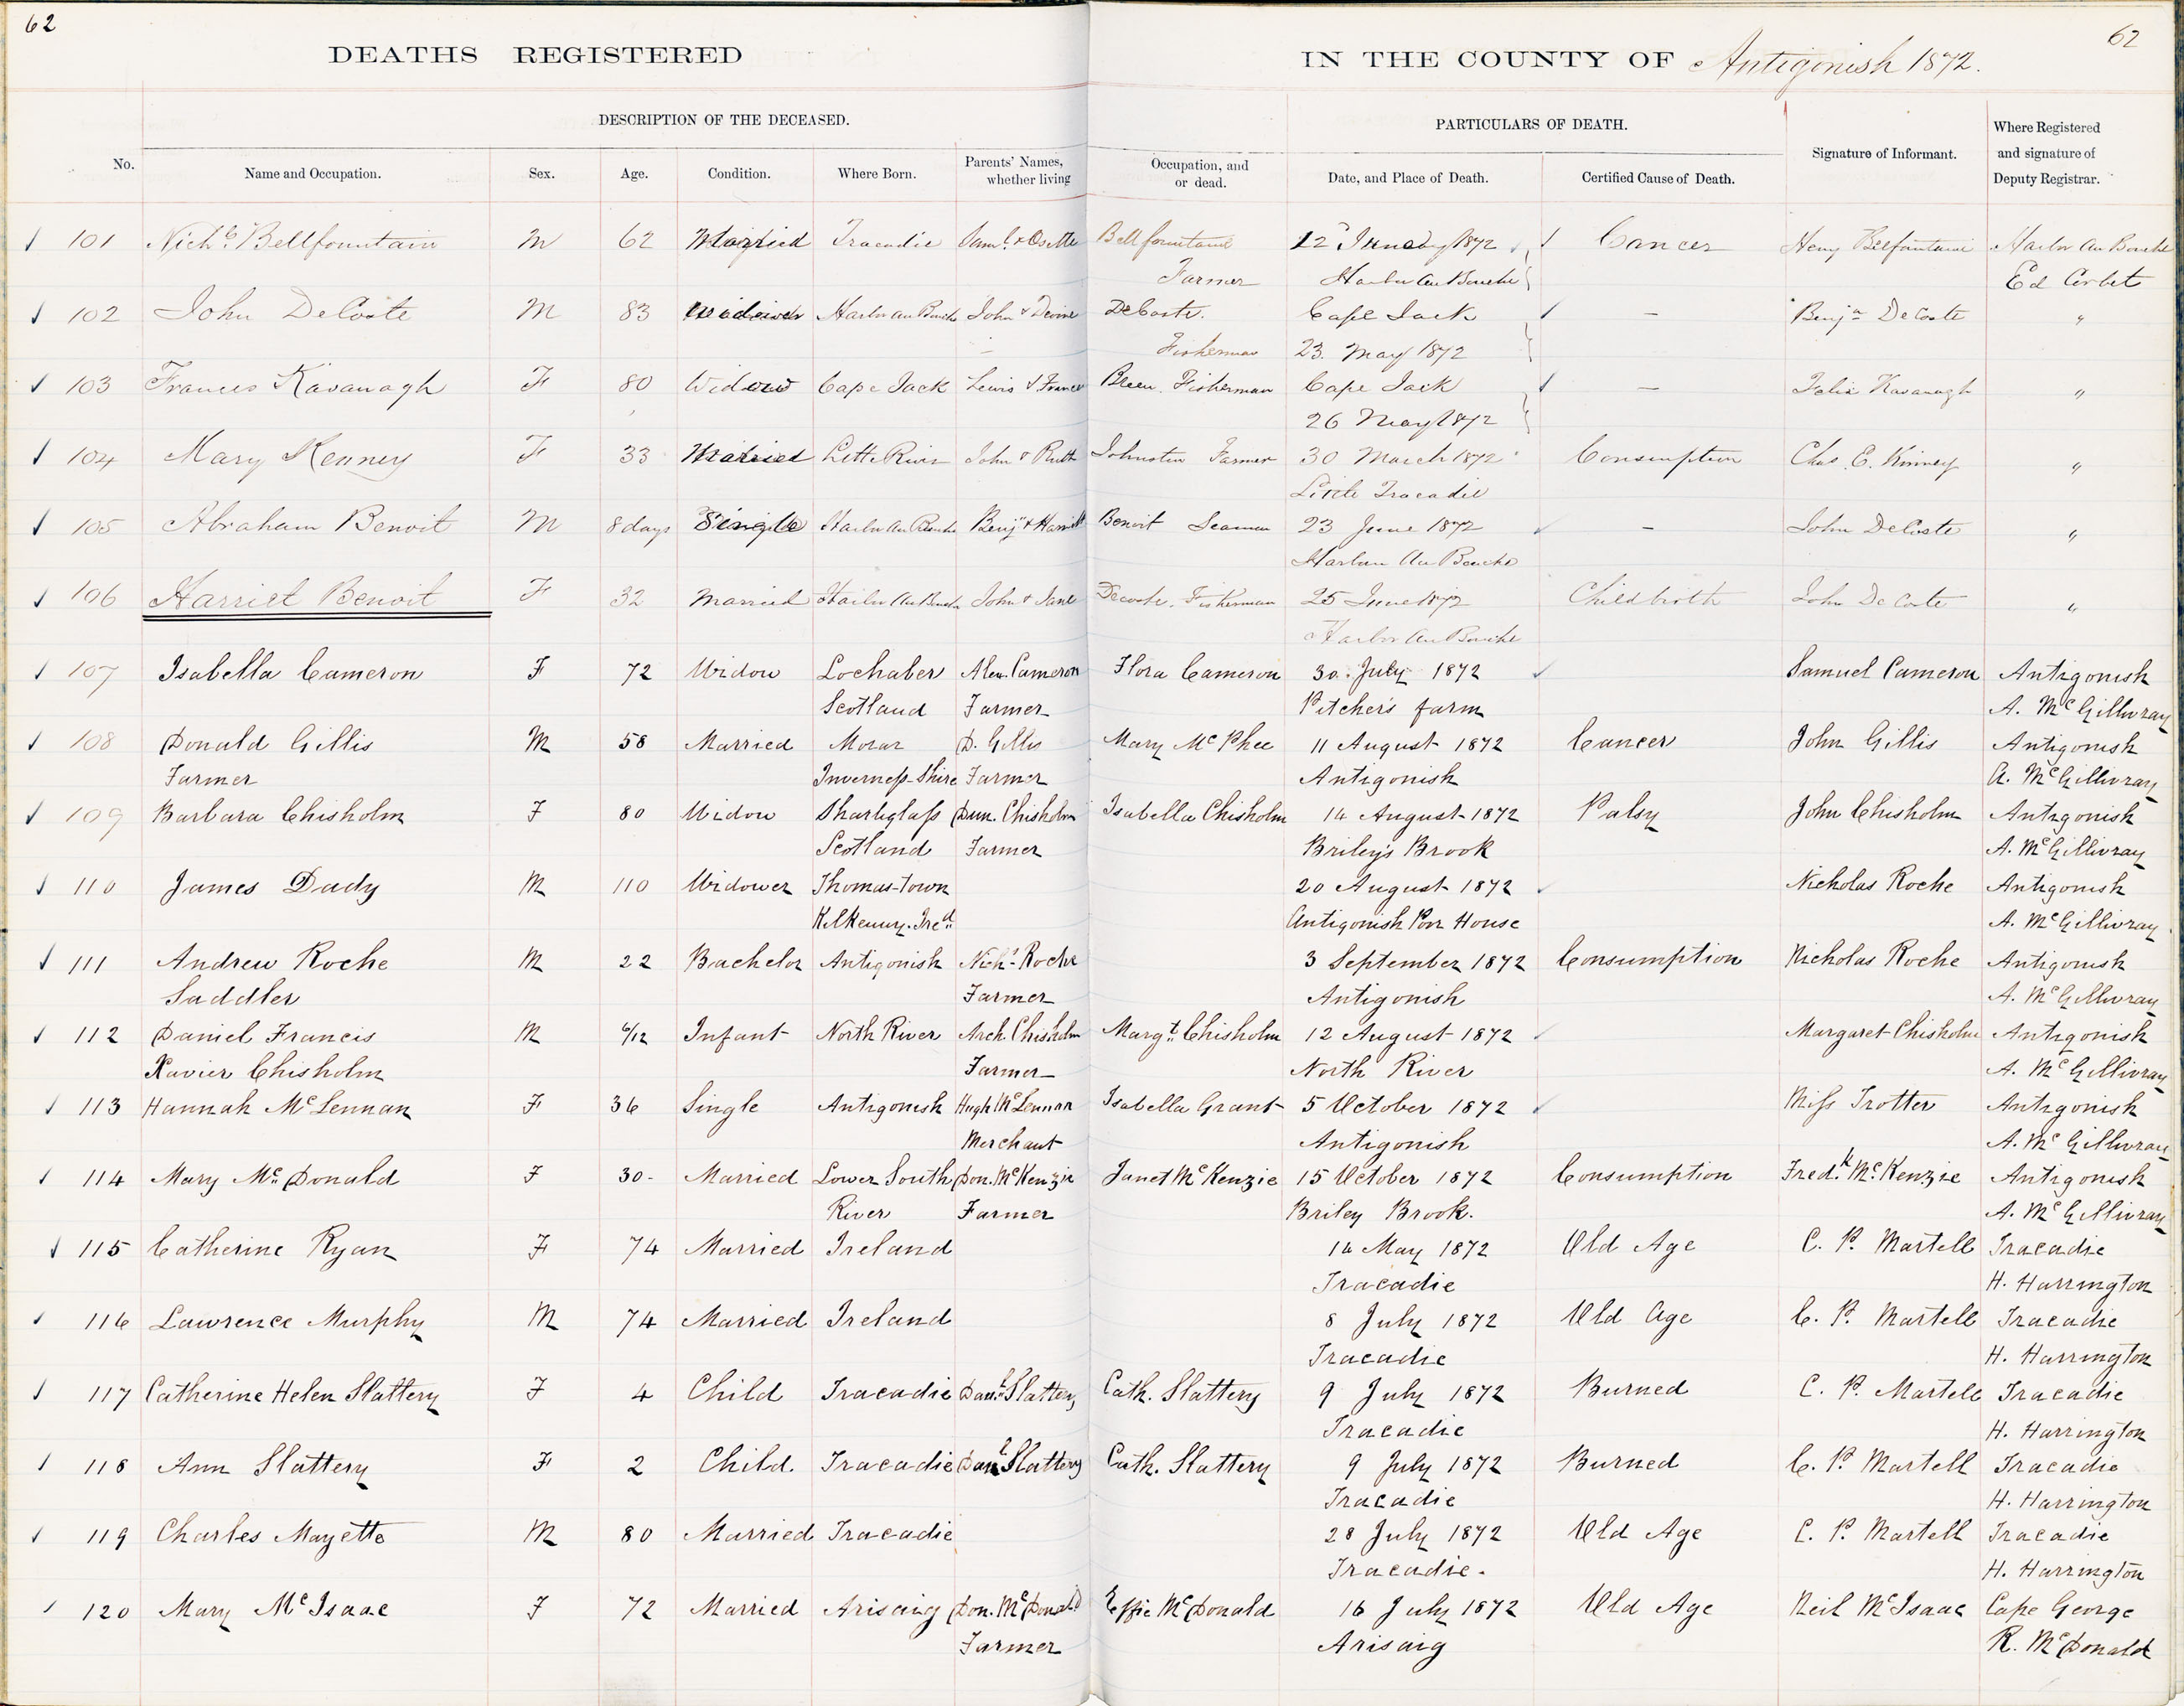 62
62
DEATHS REGISTERED IN THE COUNTY OF Antigonish 1872.
DESCRIPTION OF THE DECEASED. PARTICULARS OF DEATH.
No. Name and Occupation. Sex. Age. Condition. Where Born. Parents' Names, whether living Occupation, and or dead. Date, and Place of Death. Certified Cause of Death. Signature of Informant. Where Registered and signature of Deputy Registrar.
101 Nichs. Bellfountain M 62 Married Tracadie Saml. & Osette Bellfountaine 12 1872 Cancer Henry Belfontaine Harbor Au Bouche
Farmer Harbor Au Bouche Ed Corbet
102 John DeCoste M 83 Widower Harbor au Bouche John & DeCoste. Cape Jack — Benjn DeCoste "
Fisherman 23. May 1872
103 Frances Kavanagh F 80 Widow Cape Jack Lewis & Frances Breen. Fisherman Cape Jack — Felix Kavanagh "
26 May 1872
104 Mary Kenney F 33 Married Little River John & Ruth Johnston Farmer 30 March 1872 Consumption Chas. E. Kinney "
Little Tracadie
105 Abraham Benoit M 8 days Single Harbor Au Bouche Benjn & Harriett Benoit Seaman 23 June 1872 — John DeCoste "
Harbour Au Bouche
106 Harriet Benoit F 32 Married Harbor Au Bouche John & Jane Decoste. Fisherman 25 June 1872 Childbirth John DeCoste "
Harbor Au Bouche
107 Isabella Cameron F 72 Widow Lochaber Alex. Cameron Flora Cameron 30. July 1872 Samuel Cameron Antigonish
Scotland Farmer Pitcher's farm A. McGillivray
108 Donald Gillis M 58 Married Morar D. Gillis Mary McPhee 11 August 1872 Cancer John Gillis Antigonish
Farmer Inverness-Shire Farmer Antigonish A. McGillivray
109 Barbara Chisholm F 80 Widow Strathglass Dun. Chisholm Isabella Chisholm 14 August 1872 Palsy John Chisholm Antigonish
Scotland Farmer Briley's Brook A. McGillivray
110 James Dady M 110 Widower Thomas-town 20 August 1872 Nicholas Roche Antigonish
Kilkenny. Ired. Antigonish Poor House A. McGillivray
111 Andrew Roche M 22 Bachelor Antigonish Nichs. Roche 3 September 1872 Consumption Nicholas Roche Antigonish
Saddler Farmer Antigonish A. McGillivray
112 Daniel Francis M 6/12 Infant North River Arch. Chisholm Margt. Chisholm 12 August 1872 Margaret Chisholm Antigonish
Xavier Chisholm Farmer North River A. McGillivray
113 Hannah McLennan F 36 Single Antigonish Hugh McLennan Isabella Grant 5 October 1872 Miss Trotter Antigonish
Merchant Antigonish A. McGillivray
114 Mary McDonald F 30- Married Lower South Don. McKenzie Janet McKenzie 15 October 1872 Consumption Fredk. McKenzie Antigonish
River Farmer Briley Brook. A. McGillivray
115 Catherine Ryan F 74 Married Ireland 14 May 1872 Old Age C. P. Martell Tracadie
Tracadie H. Harrington
116 Lawrence Murphy M 74 Married Ireland 8 July 1872 Old Age C. P. Martell Tracadie
Tracadie H. Harrington
117 Catherine Helen Slattery F 4 Child Tracadie Danl. Slattery Cath. Slattery 9 July 1872 Burned C. P. Martell Tracadie
Tracadie H. Harrington
118 Ann Slattery F 2 Child. Tracadie Danl Slattery Cath. Slattery 9 July 1872 Burned C. P. Martell Tracadie
Tracadie H. Harrington
119 Charles Mayette M 80 Married Tracadie 28 July 1872 Old Age C. P. Martell Tracadie
Tracadie. H. Harrington
120 Mary McIsaac F 72 Married Arisaig Don. McDonald Effie McDonald 16 July 1872 Old Age Neil McIsaac Cape George
Farmer Arisaig R. McDonald